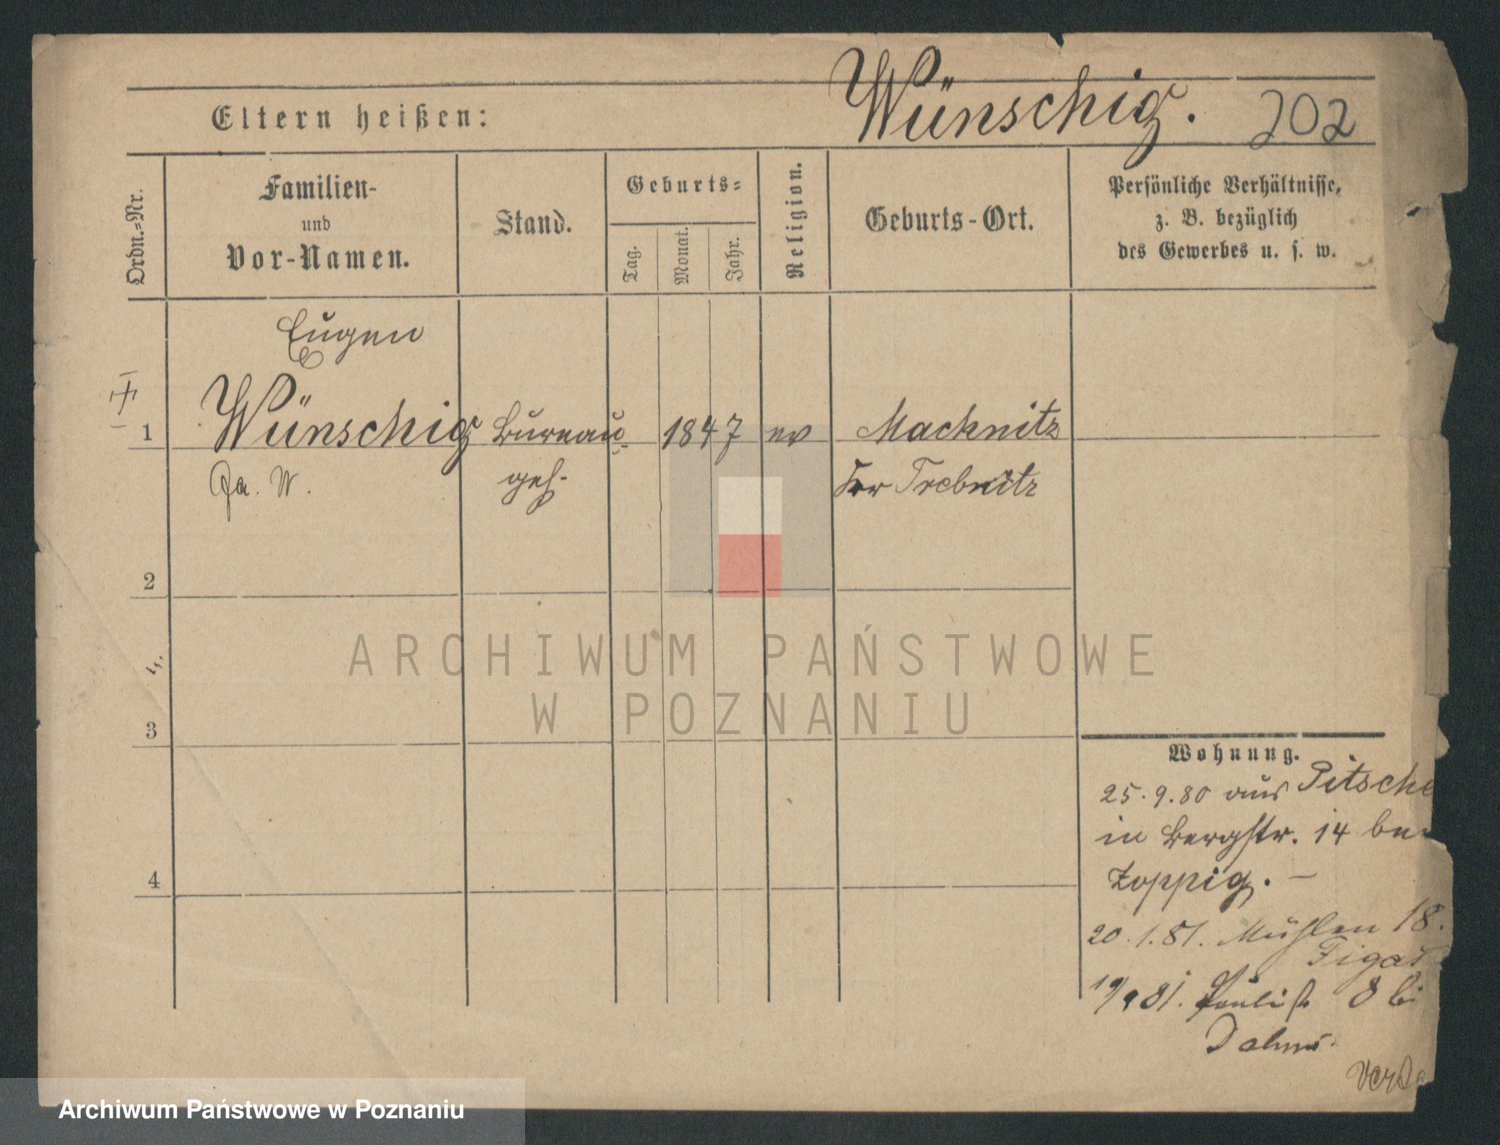 Wünschig. 202
Eltern heißen:
Ordn.-Nr.
Familien-
und
Vor-Namen.
Stand.
Geburts-
Tag.
Monat.
Jahr.
Religion.
Geburts-Ort.
Persönliche Verhältnisse,
z. B. bezüglich
des Gewerbes u. s. w.
Eugen
1 Wünschig Bureau 1847 ev Macknitz
geh. Trebnitz
2
3
4
Wohnung.
25.9.80 aus Pitsche
in Bergstr. 14 bei
Zoppig. –
20.1.81. Mühlen 18.
8 bei
ARCHIWUM PAŃSTWOWE
W POZNANIU
Archiwum Państwowe w Poznaniu